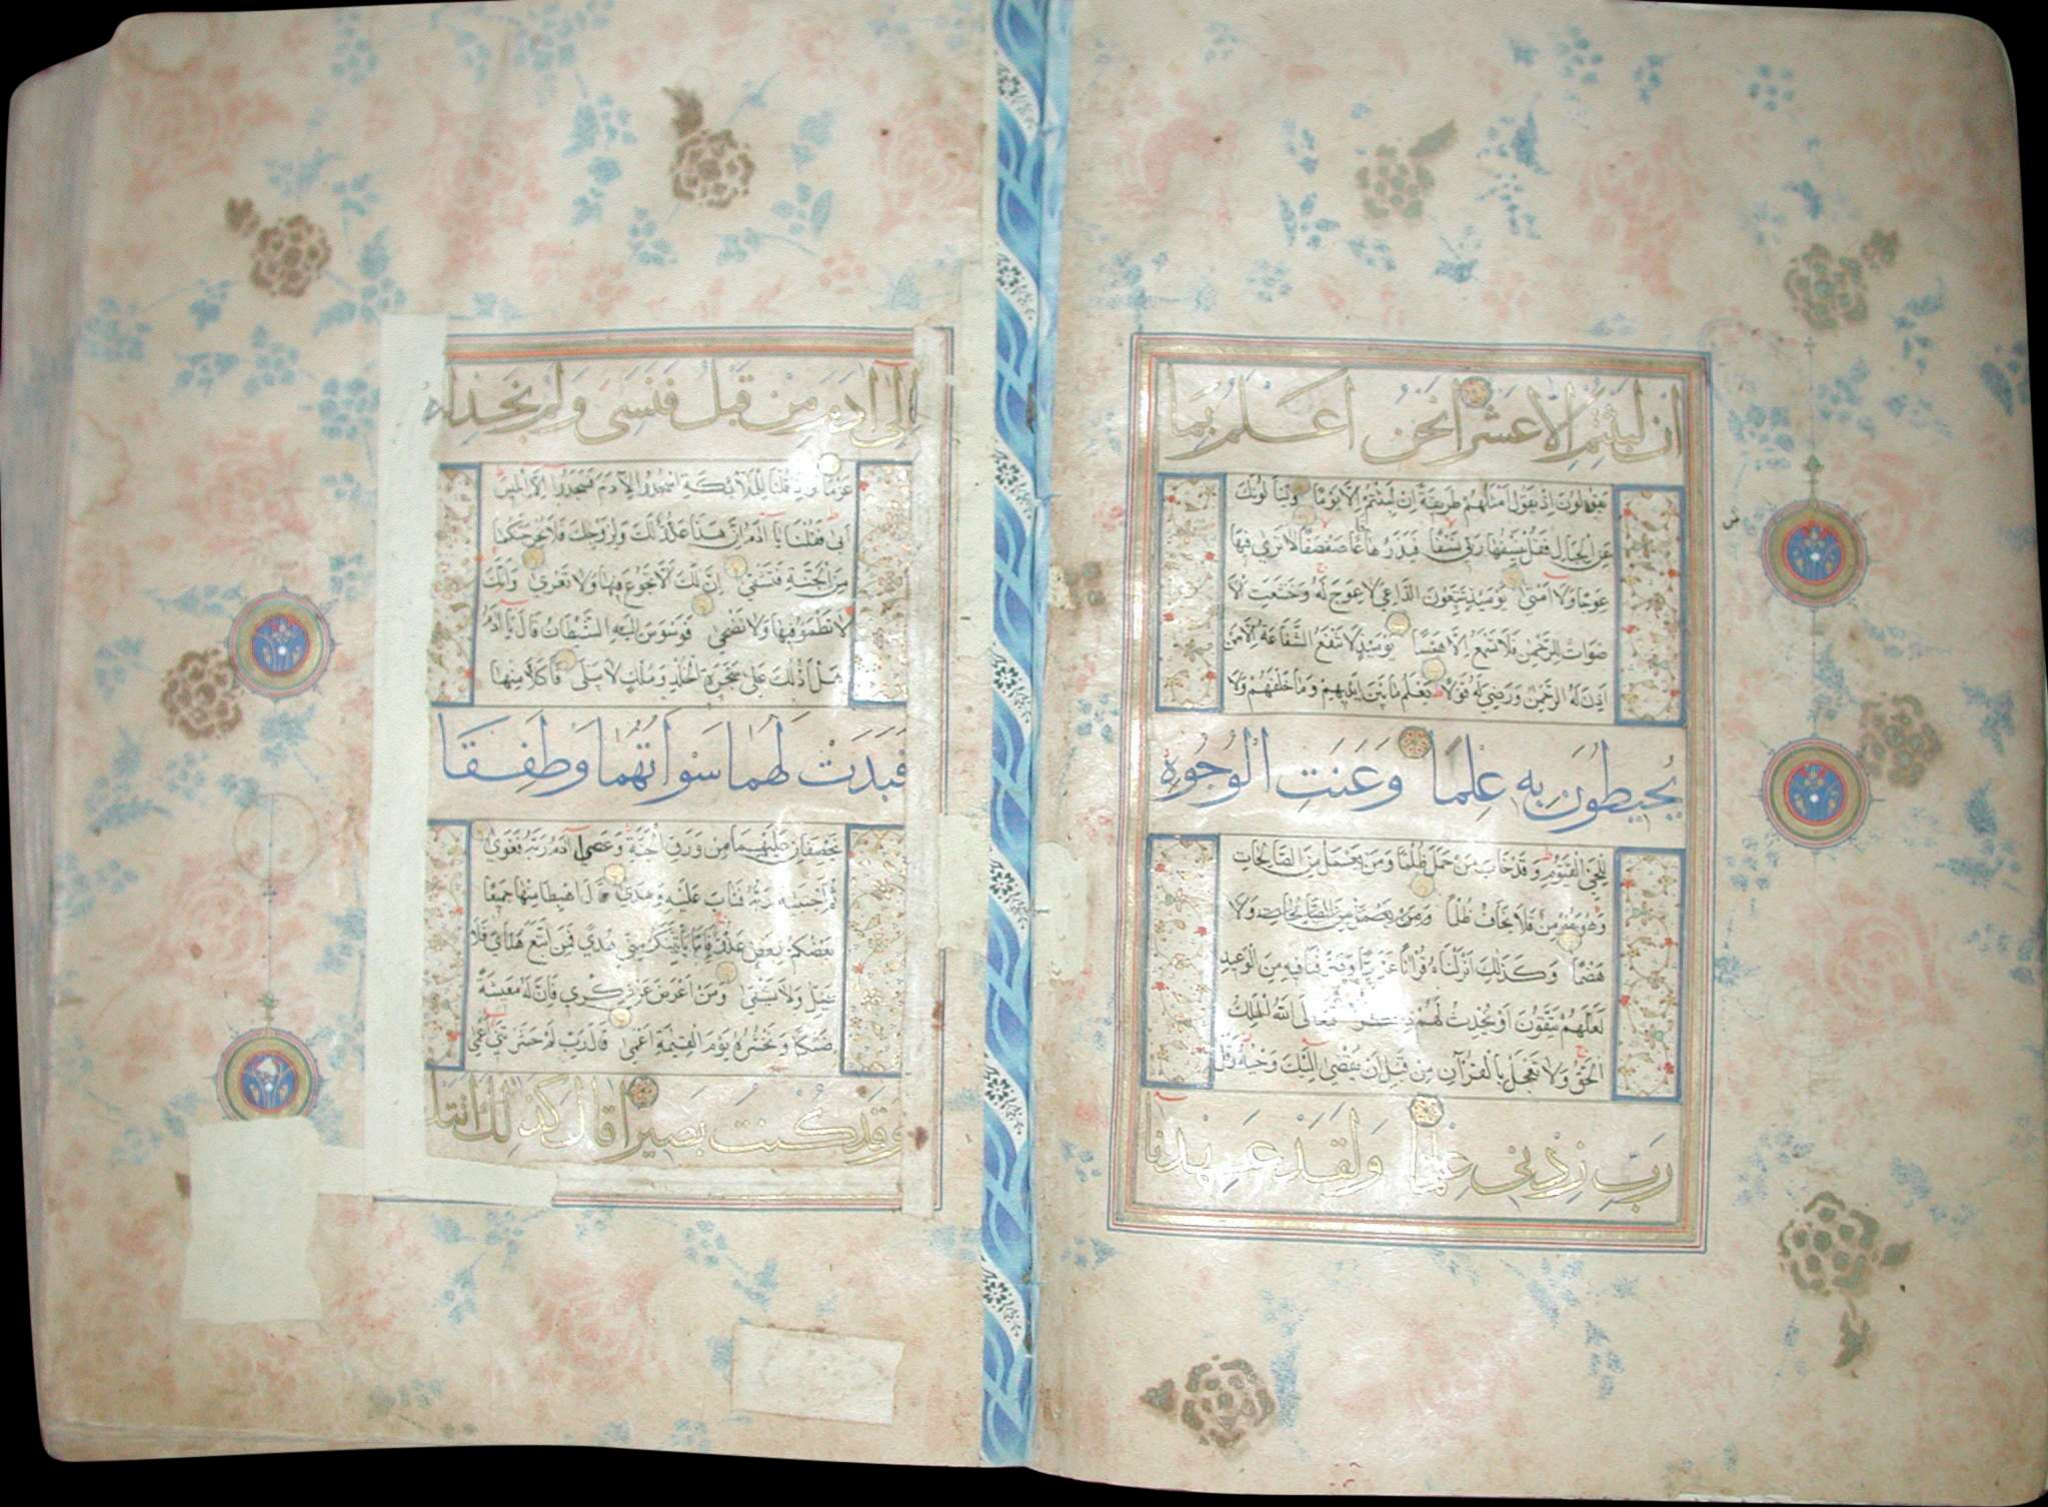 ان لبثتم الا عشرا نحن اعلم بما
يقولون اذ يقول امثلهم طريقة ان لبثتم الا يوما ويسألونك
عن الجبال فقل ينسفها ربي نسفا فيذرها قاعا صفصفا لا ترى فيها
عوجا ولا امتا يومئذ يتبعون الداعي لا عوج له وخشعت الا
صوات للرحمن فلا تسمع الا همسا يومئذ لا تنفع الشفاعة الا من
اذن له الرحمن ورضي له قولا يعلم ما بين ايديهم وما خلفهم ولا
يحيطون به علما وعنت الوجوه
للحي القيوم وقد خاب من حمل ظلما ومن يعمل من الصالحات
وهو مؤمن فلا يخاف ظلما ومن يعمل من الصالحات ولا
هضما وكذلك انزلناه قرانا عربيا وصرفنا فيه من الوعيد
لعلهم يتقون او يحدث لهم فتعالى الله الملك
الحق ولا تعجل بالقرآن من قبل ان يقضى اليك وحيه وقل
رب زدني علما ولقد عهدنا
الى آدم من قبل فنسي ولم نجد له
عزما واذ قلنا للملائكة اسجدوا لآدم فسجدوا الا ابليس
ابى فقلنا يا آدم ان هذا عدو لك ولزوجك فلا يخرجنكما
من الجنة فتشقى ان لك الا تجوع فيها ولا تعرى وانك
لا تظمؤ فيها ولا تضحى فوسوس اليه الشيطان قال يا آدم
هل ادلك على شجرة الخلد وملك لا يبلى فاكلا منها
فبدت لهما سواتهما وطفقا
يخصفان عليهما من ورق الجنة وعصى آدم ربه فغوى
ثم اجتبيه ربه فتاب عليه وهدى قال اهبطا منها جميعا
بعضكم لبعض عدو فاما يأتينكم مني هدى فمن اتبع هداي فلا
يضل ولا يشقى ومن اعرض عن ذكري فان له معيشة
ضنكا ونحشره يوم القيمة اعمى قال رب لم حشرتني اعمى
وقد كنت بصيرا قال كذلك اتتك